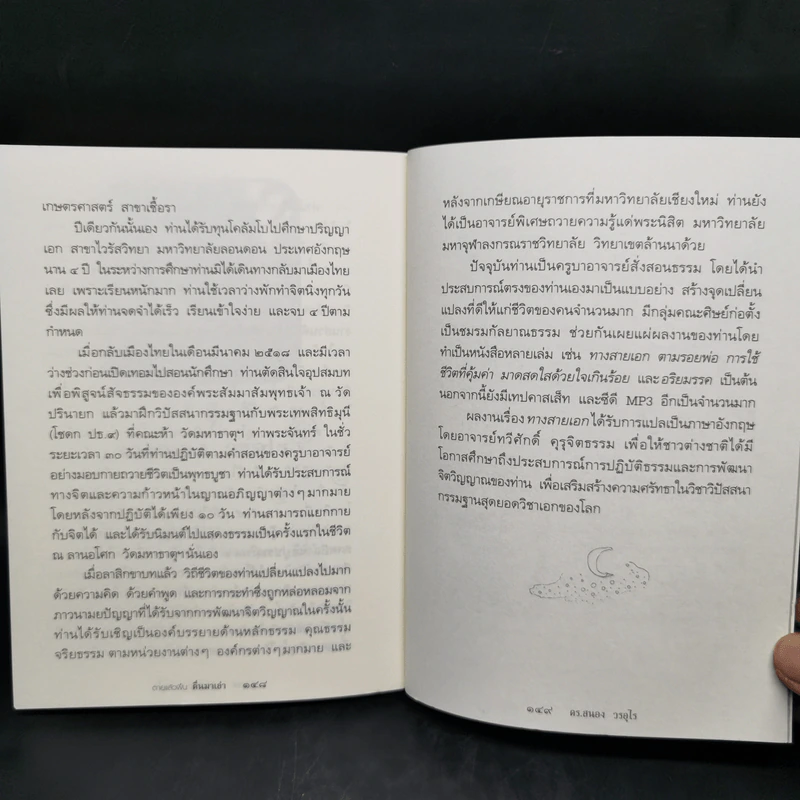 เกษตรศาสตร์ สาขาเชื้อรา
ปีเดียวกันนั้นเอง ท่านได้รับทุนโคลัมโบไปศึกษาปริญญา
เอก สาขาไวรัสวิทยา มหาวิทยาลัยลอนดอน ประเทศอังกฤษ
นาน ๔ ปี ในระหว่างการศึกษาท่านมิได้เดินทางกลับมาเมืองไทย
เลย เพราะเรียนหนักมาก ท่านใช้เวลาว่างพักทำจิตนิ่งทุกวัน
ซึ่งมีผลให้ท่านจดจำได้เร็ว เรียนเข้าใจง่าย และจบ ๔ ปีตาม
กำหนด
เมื่อกลับเมืองไทยในเดือนมีนาคม ๒๕๑๘ และมีเวลา
ว่างช่วงก่อนเปิดเทอมไปสอนนักศึกษา ท่านตัดสินใจอุปสมบท
เพื่อพิสูจน์สัจธรรมขององค์พระสัมมาสัมพุทธเจ้า ณ วัด
ปรินายก แล้วมาฝึกวิปัสสนากรรมฐานกับพระเทพสิทธิมุนี
(โชดก ปธ.๙) ที่คณะห้า วัดมหาธาตุฯ ท่าพระจันทร์ ในชั่ว
ระยะเวลา ๓๐ วันที่ท่านปฏิบัติตามคำสอนของครูบาอาจารย์
อย่างมอบกายถวายชีวิตเป็นพุทธบูชา ท่านได้รับประสบการณ์
ทางจิตและความก้าวหน้าในญาณอภิญญาต่างๆ มากมาย
โดยหลังจากปฏิบัติได้เพียง ๑๐ วัน ท่านสามารถแยกกาย
กับจิตได้ และได้รับนิมนต์ไปแสดงธรรมเป็นครั้งแรกในชีวิต
ณ ลานอโศก วัดมหาธาตุฯ นั่นเอง
เมื่อลาสิกขาบทแล้ว วิถีชีวิตของท่านเปลี่ยนแปลงไปมาก
ด้วยความคิด ด้วยคำพูด และการกระทำซึ่งถูกหล่อหลอมจาก
ภาวนามยปัญญาที่ได้รับจากการพัฒนาจิตวิญญาณในครั้งนั้น
ท่านได้รับเชิญเป็นองค์บรรยายด้านหลักธรรม คุณธรรม
จริยธรรม ตามหน่วยงานต่างๆ องค์กรต่างๆ มากมาย และ
ตายแล้วฟื้น ตื่นมาเล่า ๑๔๘
หลังจากเกษียณอายุราชการที่มหาวิทยาลัยเชียงใหม่ ท่านยัง
ได้เป็นอาจารย์พิเศษถวายความรู้แด่พระนิสิต มหาวิทยาลัย
มหาจุฬาลงกรณราชวิทยาลัย วิทยาเขตล้านนาด้วย
ปัจจุบันท่านเป็นครูบาอาจารย์สั่งสอนธรรม โดยได้นำ
ประสบการณ์ตรงของท่านเองมาเป็นแบบอย่าง สร้างจุดเปลี่ยน
แปลงที่ดีให้แก่ชีวิตของคนจำนวนมาก มีกลุ่มคณะศิษย์ก่อตั้ง
เป็นชมรมกัลยาณธรรม ช่วยกันเผยแผ่ผลงานของท่านโดย
ทำเป็นหนังสือหลายเล่ม เช่น ทางสายเอก ตามรอยพ่อ การใช้
ชีวิตที่คุ้มค่า มาดสดใสด้วยใจเกินร้อย และอริยมรรค เป็นต้น
นอกจากนี้ยังมีเทปคาสเส็ท และซีดี MP3 อีกเป็นจำนวนมาก
ผลงานเรื่อง ทางสายเอก ได้รับการแปลเป็นภาษาอังกฤษ
โดยอาจารย์ทวีศักดิ์ คุรุจิตธรรม เพื่อให้ชาวต่างชาติได้มี
โอกาสศึกษาถึงประสบการณ์การปฏิบัติธรรมและการพัฒนา
จิตวิญญาณของท่าน เพื่อเสริมสร้างความศรัทธาในวิชาวิปัสสนา
กรรมฐานสุดยอดวิชาเอกของโลก
๑๔๙ ดร.สนอง วรอุไร